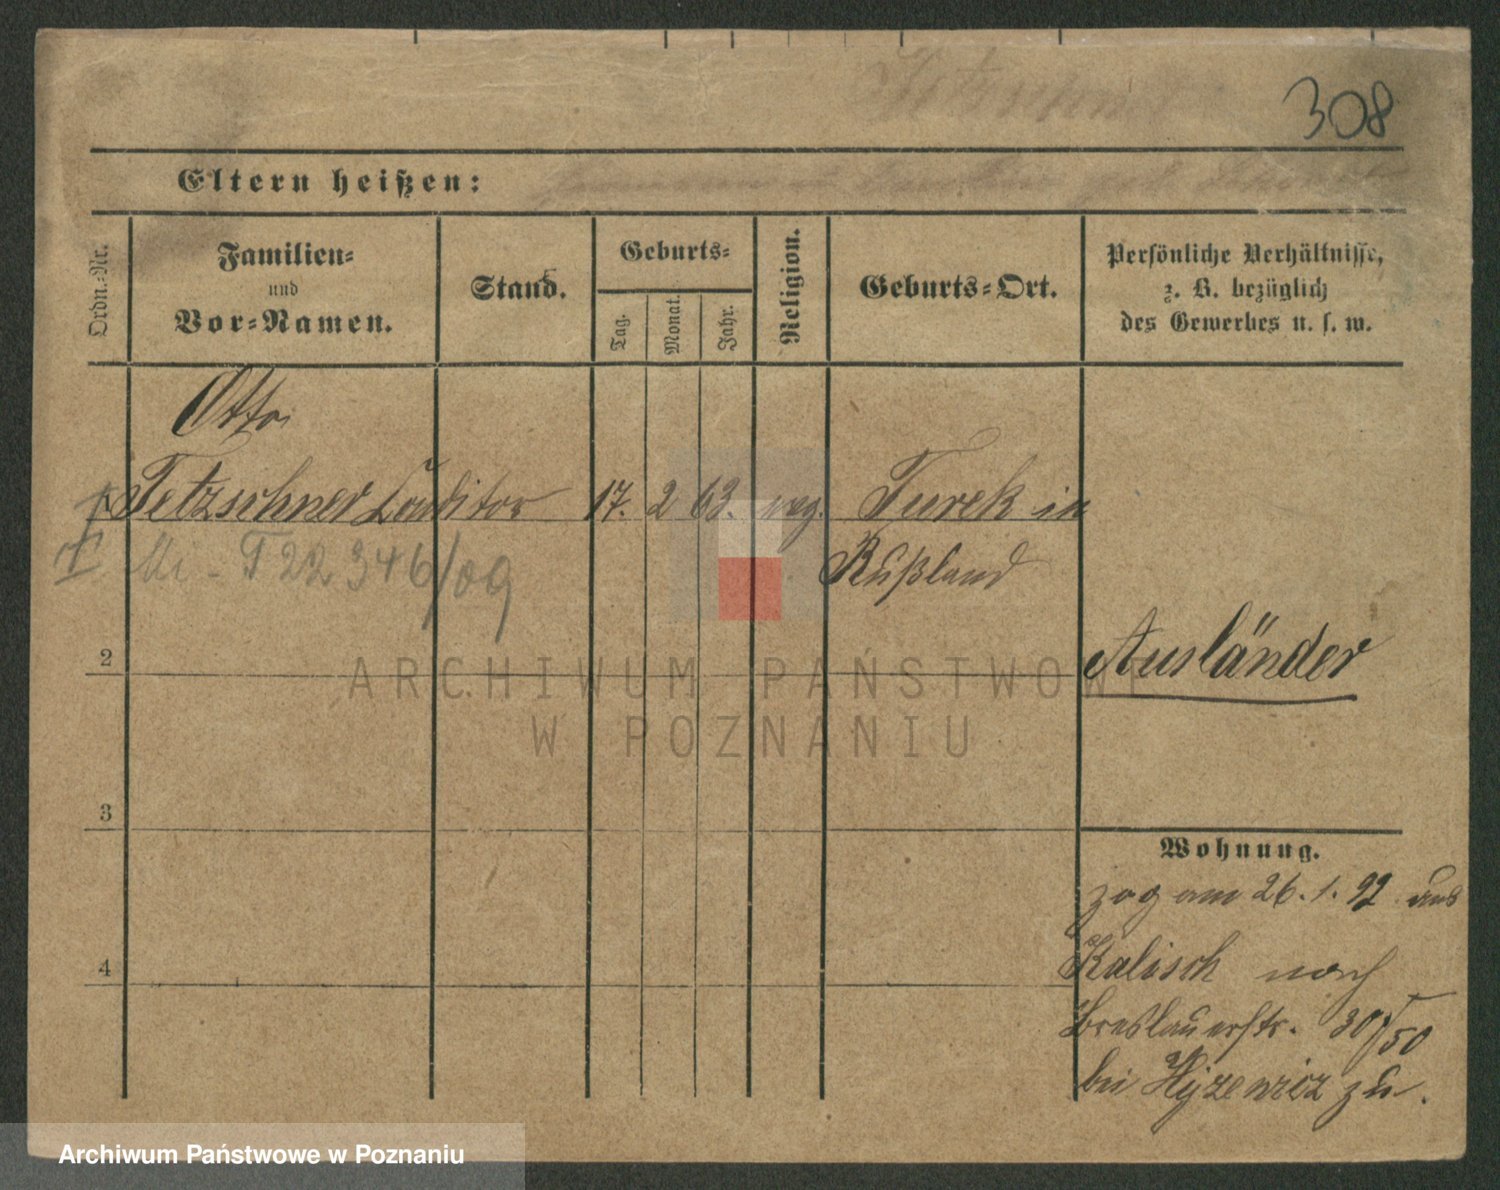 Tetzschner
308
Eltern heißen:
Ordn.-Nr.
Familien-
und
Vor-Namen.
Stand.
Geburts-
Tag.
Monat.
Jahr.
Religion.
Geburts-Ort.
Persönliche Verhältnisse,
z. B. bezüglich
des Gewerbes u. s. w.
Otto
Tetzschner Conditor 17. 2 63. evg. Turek in
Rußland
22346/09
2
Ausländer
3
Wohnung.
zog am 26.1.92 aus
4
Kalisch nach
Breslauerstr. 30/50
bei zu.
ARCHIWUM PAŃSTWOWE
W POZNANIU
Archiwum Państwowe w Poznaniu